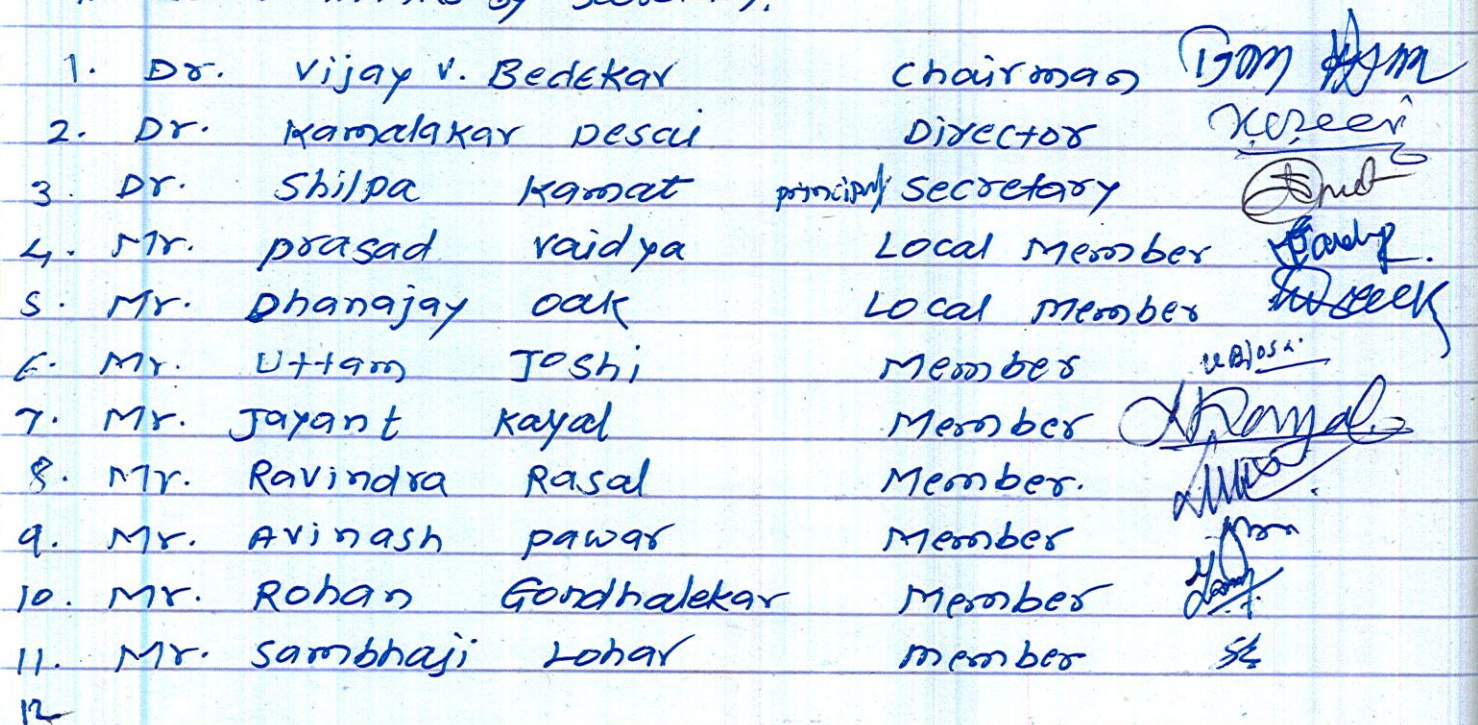 by Secretary.
1. Dr. Vijay V. Bedekar Chairman
2. Dr. Kamalakar Desai Director
3. Dr. Shilpa Kamat principal Secretary
4. Mr. Prasad Vaidya Local Member
5. Mr. Dhanajay Oak Local Member
6. Mr. Uttam Joshi Member
7. Mr. Jayant Kayal Member
8. Mr. Ravindra Rasal Member.
9. Mr. Avinash Pawar Member
10. Mr. Rohan Gondhalekar Member
11. Mr. Sambhaji Lohar Member
12